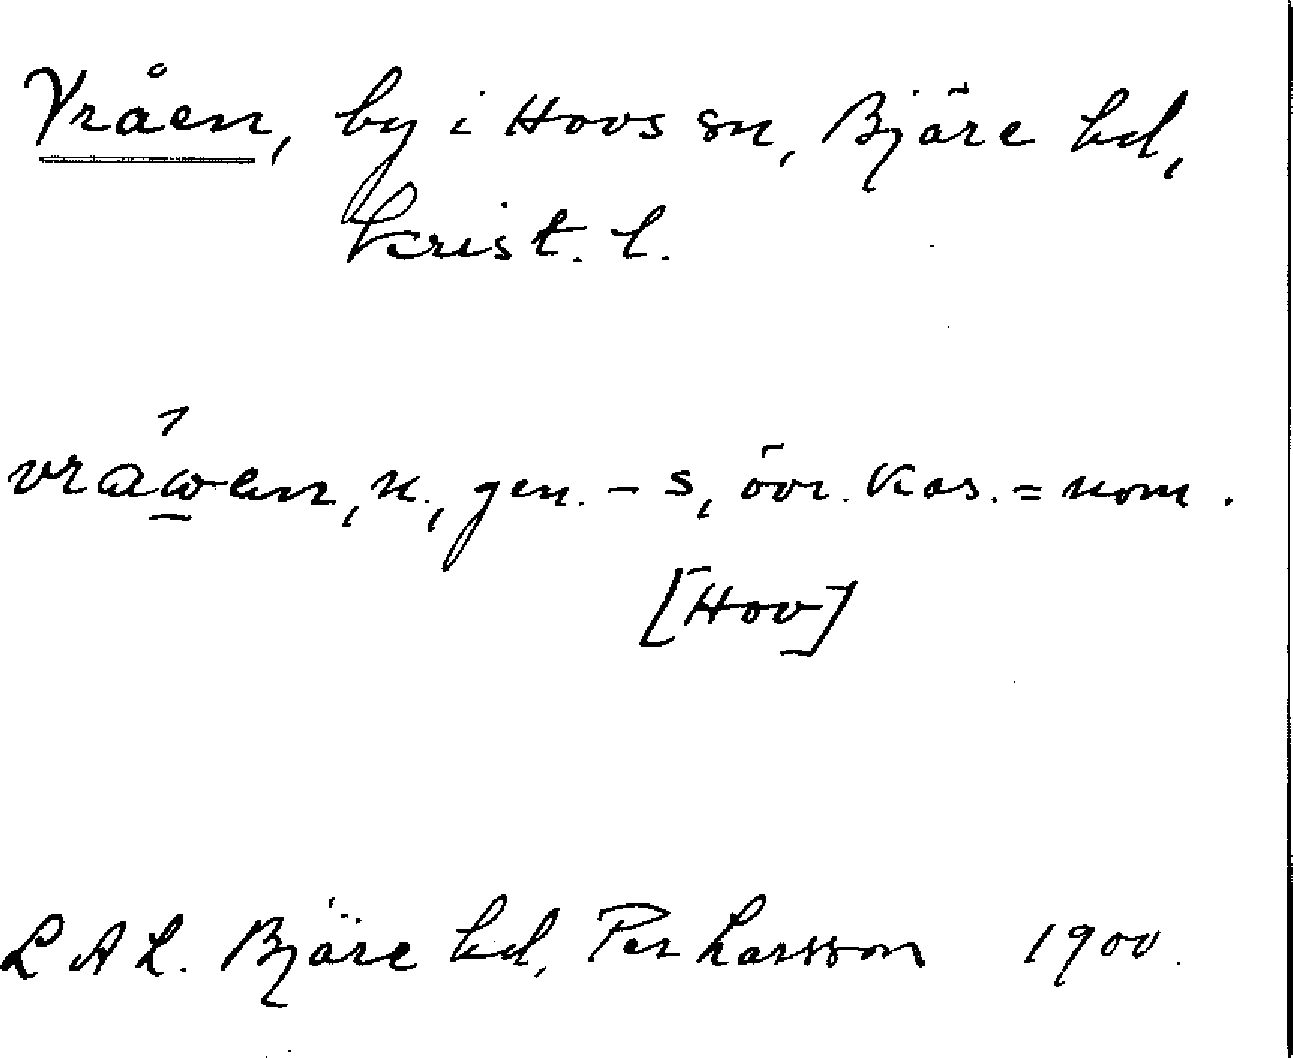 Vråen, by i Hovs sn, Bjäre hd,
Krist. l.
vråwen, n., gen. - s, övr. kas. = nom.
[Hov]
L A L. Bjäre hd, Per Larsson 1900.